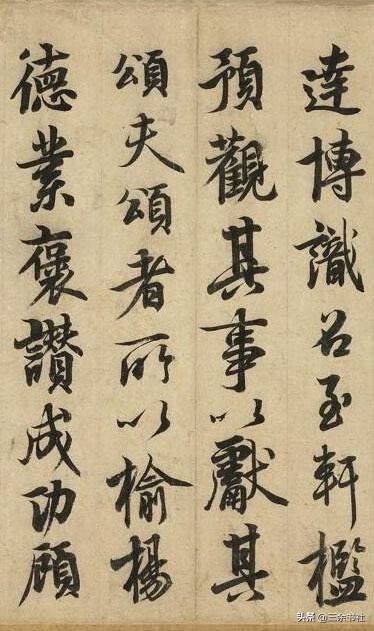 達博識召至軒檻
預觀其事以獻其
頌夫頌者所以榆楊
德業褒讚成功顧
头条 @三余书社